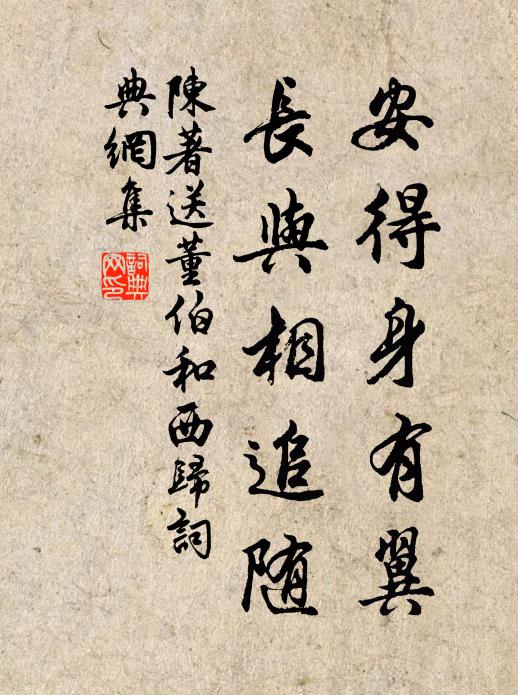 安得身有翼
長與相追随
陳著送董伯和西歸詞
典網集
詞典网印